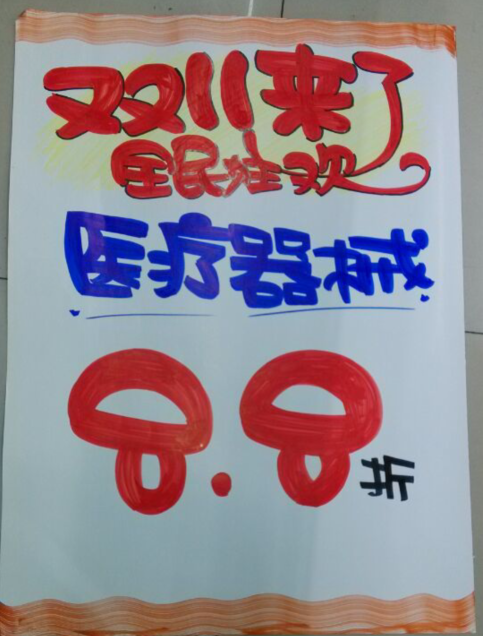 双11来了
全民狂欢
医疗器械
8.8折